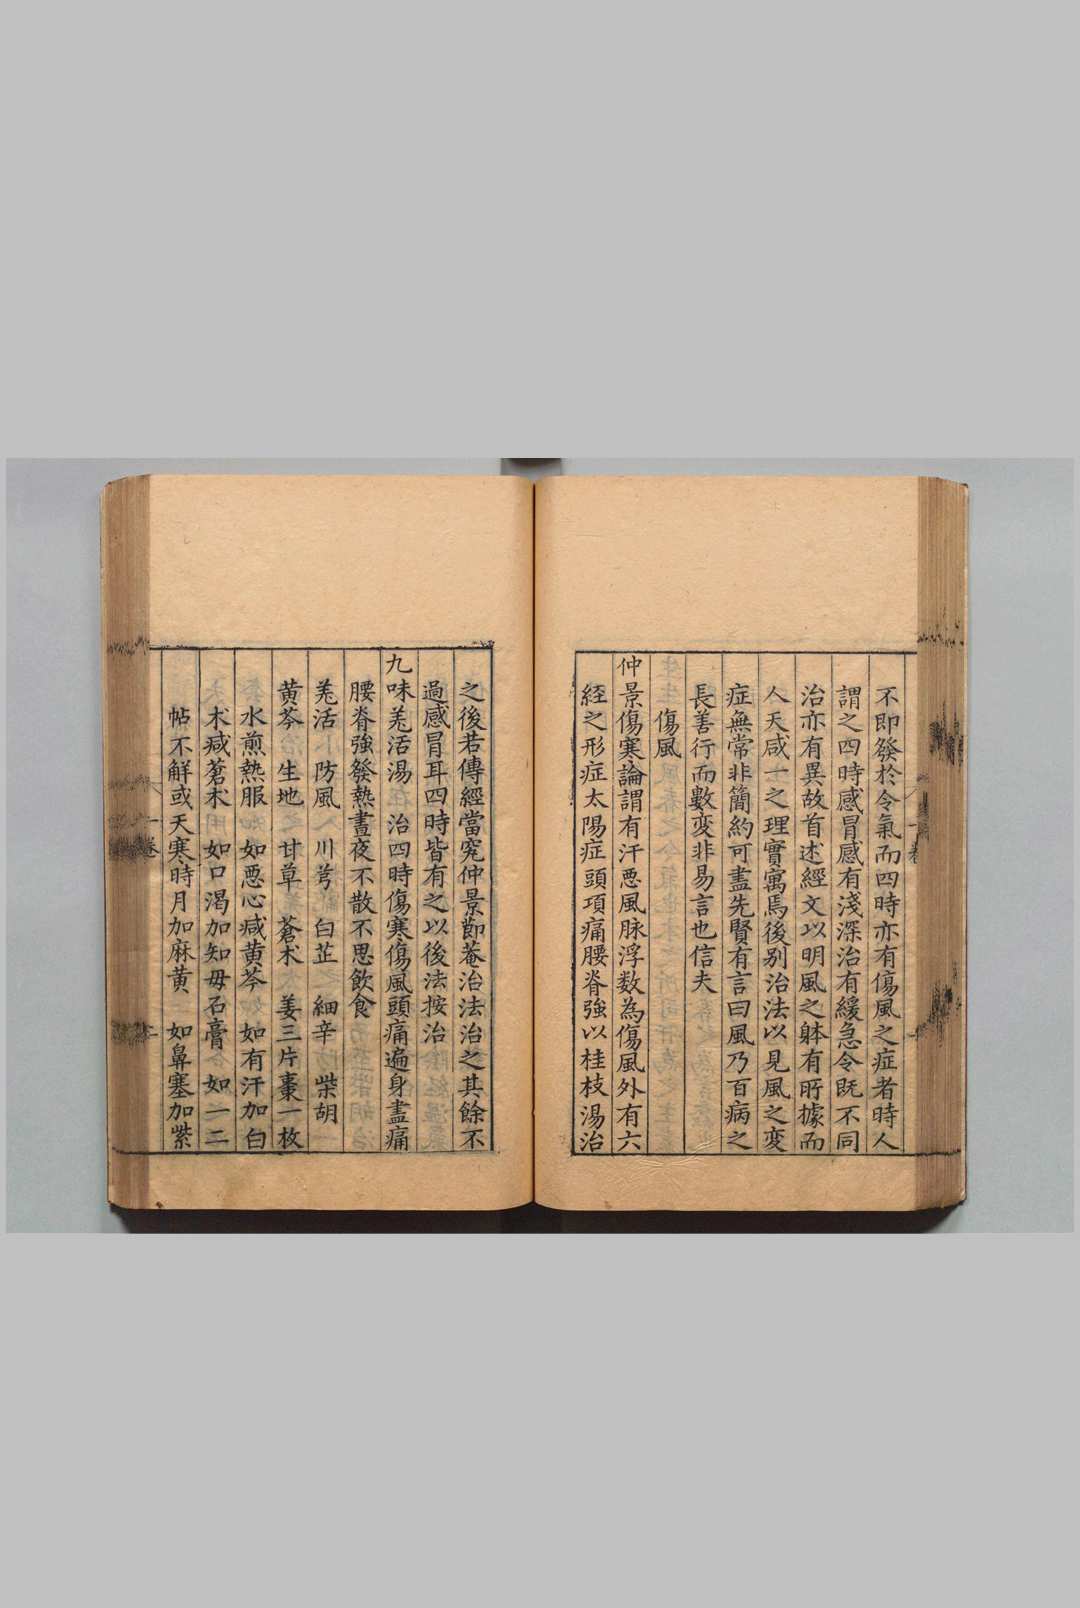 不即發於令氣而四時亦有傷風之症者時人
謂之四時感冒感有淺深治有緩急令既不同
治亦有異故首述經文以明風之躰有所據而
人天咸一之理實寓焉後别治法以見風之变
症無常非簡約可盡先賢有言曰風乃百病之
長善行而數变非易言也信夫
傷風
仲景傷寒論謂有汗悪風脉浮数為傷風外有六
経之形症太陽症頭項痛腰脊強以桂枝湯治
之後若傳經當究仲景節菴治法治之其餘不
過感冒耳四時皆有之以後法按治
九味羌活湯 治四時傷寒傷風頭痛遍身盡痛
腰脊強發熱晝夜不散不思飲食
羌活 防風 川芎 白芷 細辛 柴胡
黄芩 生地 甘草 蒼术 姜三片棗一枚
水煎熱服 如悪心咸黄芩 如有汗加白
术咸蒼术 如口渴加知毋石膏 如一二
帖不解或天寒時月加麻黄 如鼻塞加紫
卷一